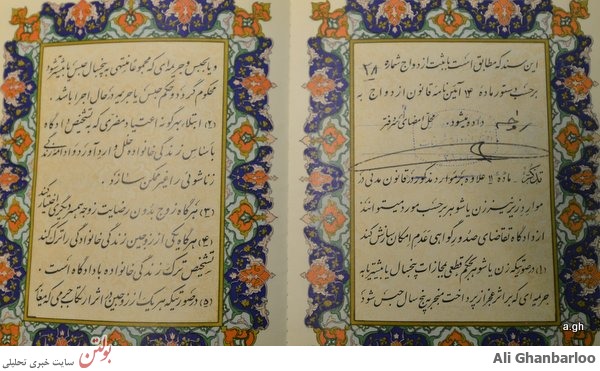 این سند که مطابق است با ثبت ازدواج شماره ۳۸
برحسب دستور ماده ۱۴ آئین نامه قانون ازدواج به
زوج داده میشود. محل امضای دفتر
تذکر: ماده ۱۱ علاوه بر موارد مذکور در قانون مدنی در
موارد زیر نیز زن یا شوهر برحسب مورد میتواند
از دادگاه تقاضای صدور گواهی عدم امکان سازش کند
(۱) درصورتیکه زن یا شوهر بحکم قطعی بمجازات پنجسال یا بیشتر یا به
جرمه‌ای که بر اثر عجز از پرداخت منجر به پنج سال حبس شود
و یا بحبس و جریمه‌ای که مجموعا منتهی به پنجسال حبس یا بیشتر شود
محکوم گردد و حکم حبس یا جریمه در حال اجرا باشد.
(۲) ابتلاء بهرگونه اعتیاد مضری که به تشخیص دادگاه
باساس زندگی خانواده خلل وارد آورد و ادامه زندگی
زناشوئی را غیر ممکن سازد.
(۳) هرگاه زوج بدون رضایت زوجه همسر دیگری اختیار کند
(۴) هرگاه یکی از زوجین زندگی خانوادگی را ترک کند
تشخیص ترک زندگی خانواده با دادگاه است.
(۵) درصورتیکه هر یک از زوجین در اثر ارتکاب جرمی که مغایر
a.gh
بولتن سایت خبری تحلیلی
Ali Ghanbarloo